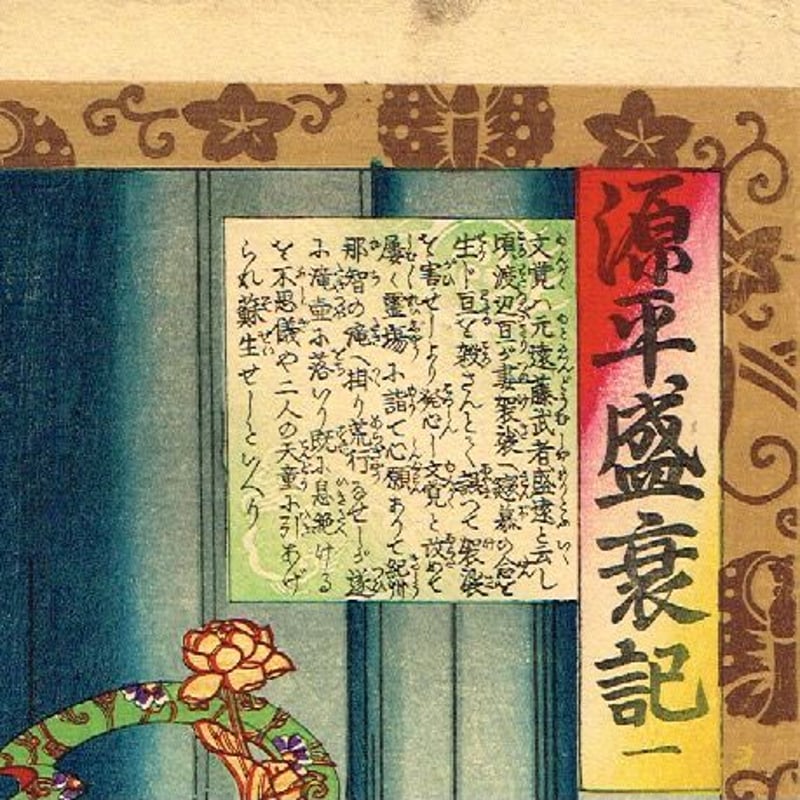 源平盛衰記 一
文覚ハ元遠藤武者盛遠と云し
頃渡辺亘が妻袈裟へ恋慕の念を
生じ亘を殺さんとして誤つて袈裟
を害せしより発心し文覚と改めて
屡々霊場に詣て心願ありて紀州
那智の滝へ掛り荒行なせしが遂
に滝壺に落いり既に息絶ける
を不思儀や二人の天童に引あげ
られ蘇生せしといへり